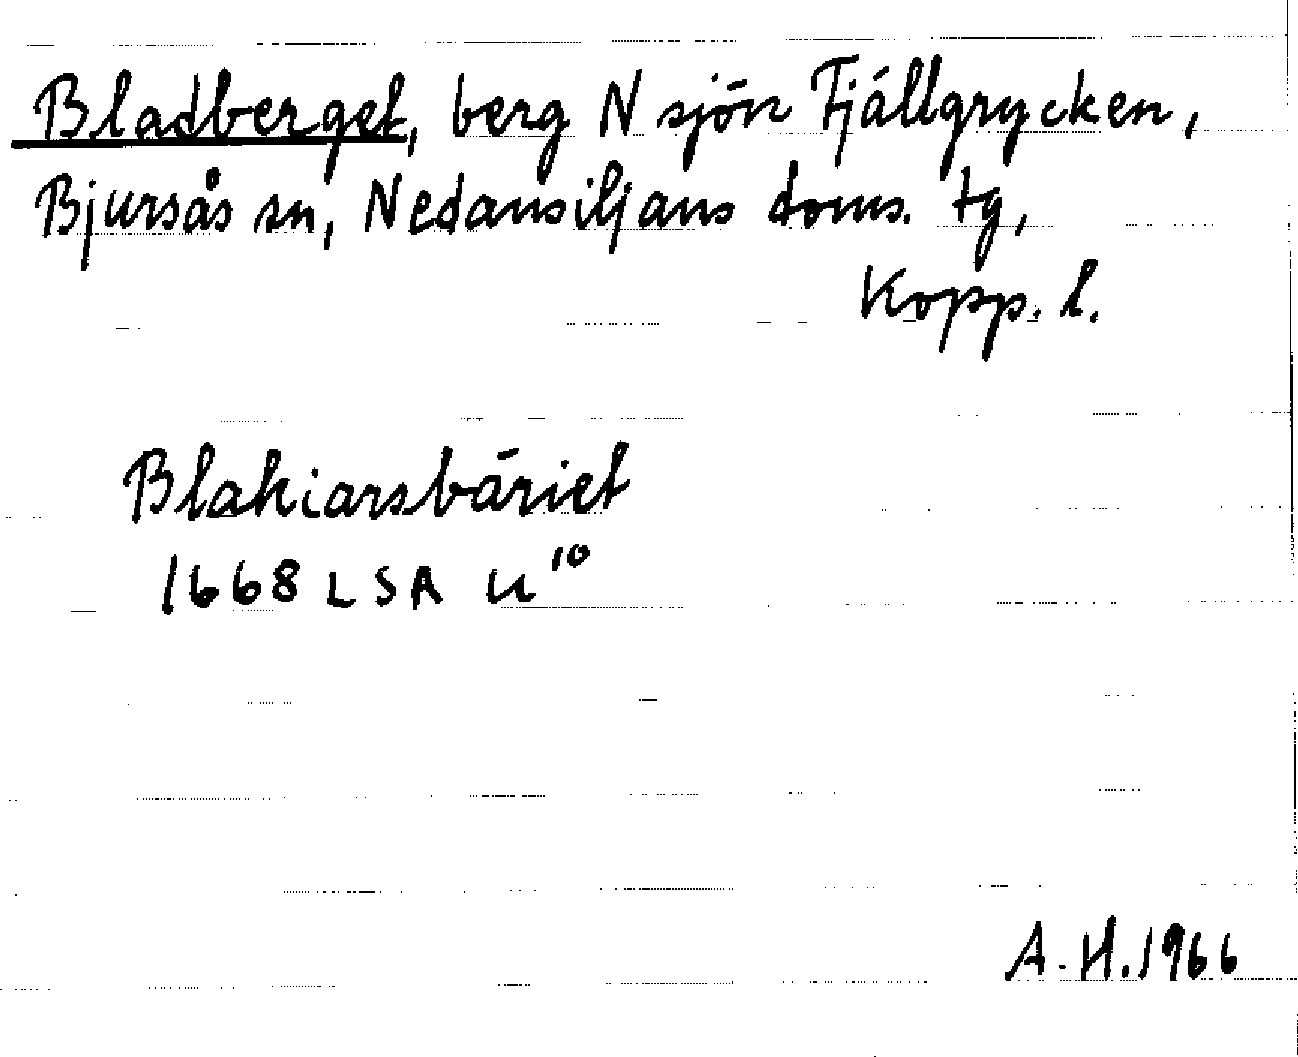 Bladberget, berg N sjön Fjällgrycken,
Bjursås sn, Nedansiljans doms. tg,
Kopp. l.
Blakiarsbäriet
1668 LSA U¹⁰
A.H. 1966